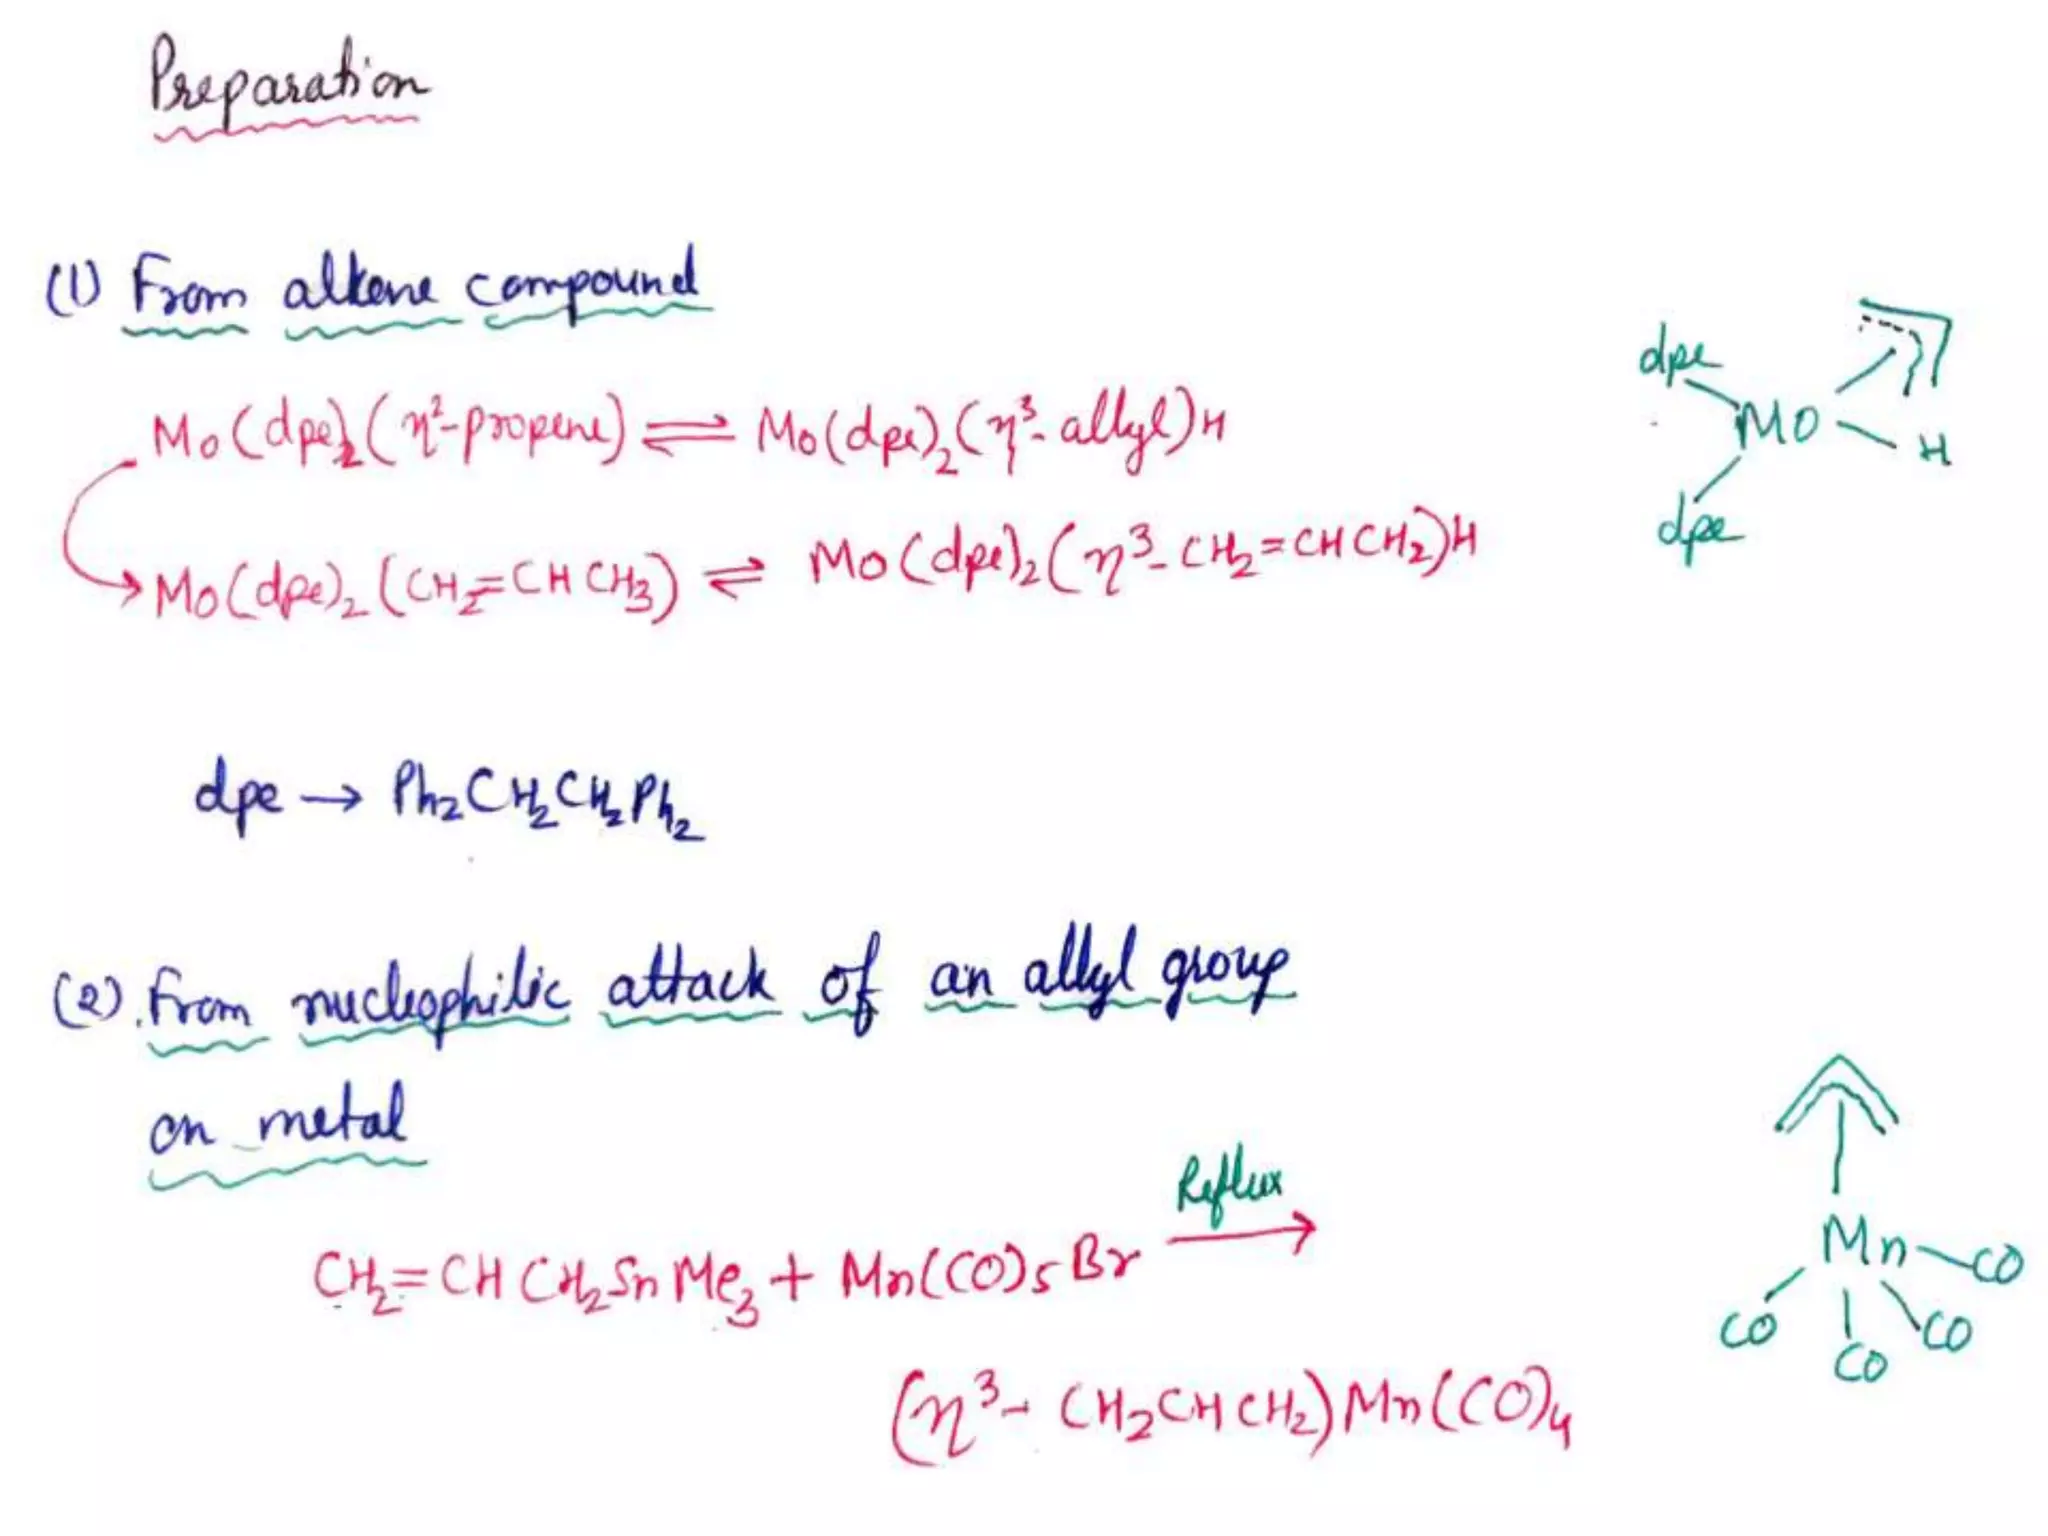 Preparation
(1) From alkene compound
Mo(dpe)₂(η²-propene) ⇌ Mo(dpe)₂(η³-allyl)H
Mo(dpe)₂(CH₂=CHCH₃) ⇌ Mo(dpe)₂(η³-CH₂=CHCH₂)H
dpe
Mo
H
dpe
dpe → Ph₂CH₂CH₂Ph₂
(2). From nucleophilic attack of an allyl group
on metal
Reflux
CH₂=CHCH₂SnMe₃ + Mn(CO)₅Br →
(η³-CH₂CHCH₂)Mn(CO)₄
Mn
CO
CO
CO
CO